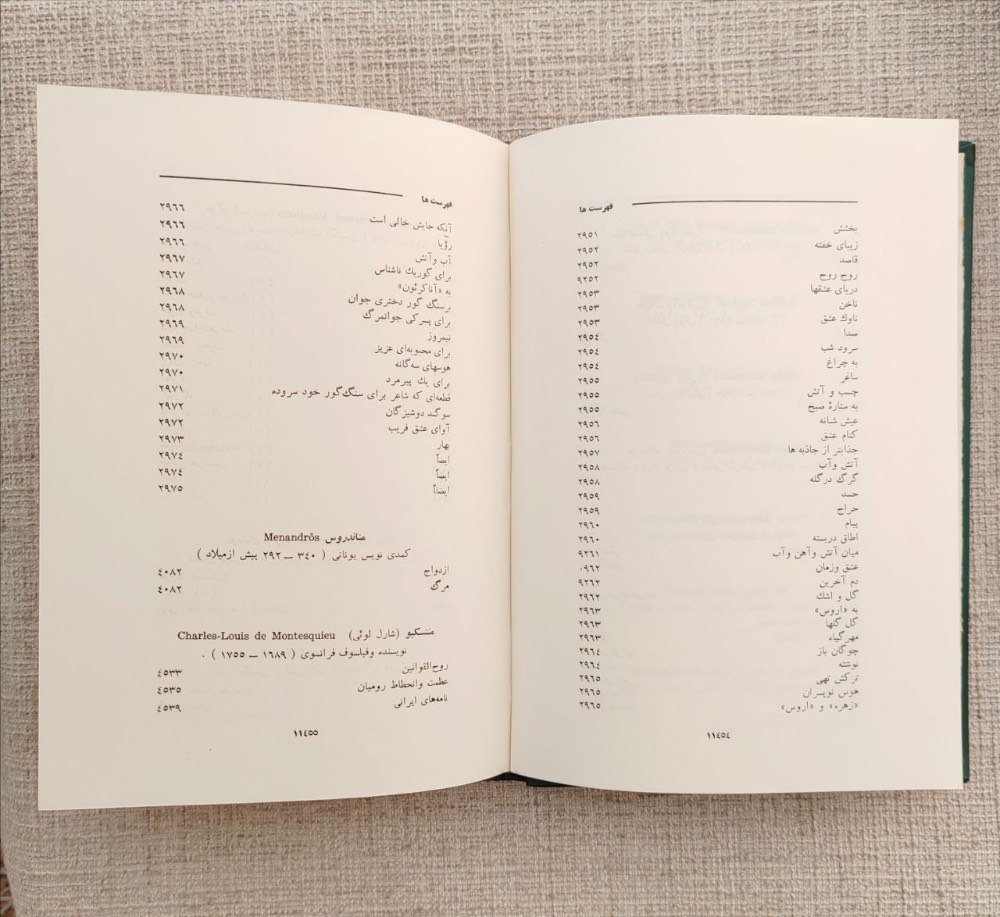 فهرست ها
بخشش ۲۹۵۱
زیبای خفته ۲۹۵۲
قاصد ۲۹۵۲
روح روح ۹۲۵۲
دریای عشقها ۲۹۵۳
ناخن ۲۹۵۳
ناوك عشق ۲۹۵۳
صدا ۲۹۵۴
سرود شب ۲۹۵۴
به چراغ ۲۹۵۴
ساغر ۲۹۵۵
چسب و آتش ۲۹۵۵
به ستارهٔ صبح ۲۹۵۵
عیش شبانه ۲۹۵۶
کنام عشق ۲۹۵۶
جذابتر از جاذبه ها ۲۹۵۷
آتش وآب ۲۹۵۸
گرگ درگله ۲۹۵۸
حسد ۲۹۵۹
حراج ۲۹۵۹
پیام ۲۹۶۰
اطاق دربسته ۲۹۶۰
میان آتش وآهن وآب ۹۲۶۱
عشق وزمان ۰۹۶۲
دم آخرین ۹۲۶۲
گل و اشك ۲۹۶۲
به «اروس» ۲۹۶۳
گل گلها ۲۹۶۳
مهرگیاه ۲۹۶۳
چوگان باز ۲۹۶۴
نوشته ۲۹۶۴
ترکش تهی ۲۹۶۵
هوس نوپسران ۲۹۶۵
«زهره» و «اروس» ۲۹۶۵
۱۱۴۵۴
فهرست ها
آنکه جایش خالی است ۲۹۶۶
رؤیا ۲۹۶۶
آب وآتش ۲۹۶۶
برای گوریك ناشناس ۲۹۶۷
به «آناکرئون» ۲۹۶۷
برسنگ گور دختری جوان ۲۹۶۸
برای پسرکی جوانمرگ ۲۹۶۸
نیمروز ۲۹۶۹
برای محبوبه‌ای عزیز ۲۹۶۹
هوسهای سه‌گانه ۲۹۷۰
برای یك پیرمرد ۲۹۷۰
قطعه‌ای که شاعر برای سنگ‌گور خود سروده ۲۹۷۱
سوگند دوشیزگان ۲۹۷۲
آوای عشق فریب ۲۹۷۲
بهار ۲۹۷۳
ایضاً ۲۹۷٤
ایضاً ۲۹۷٤
ایضاً ۲۹۷۵
مناندروس Menandrôs
کمدی نویس یونانی ( ۳٤۰ ــ ۲۹۲ پیش ازمیلاد )
ازدواج ٤۰۸۲
مرگ ٤۰۸۲
منتسکیو (شارل لوئی) Charles-Louis de Montesquieu
نویسنده وفیلسوف فرانسوی ( ۱۶۸۹ ــ ۱۷۵۵ ) .
روح‌القوانین ٤۵۳۳
عظمت وانحطاط رومیان ٤۵۳۵
نامه‌های ایرانی ٤۵۳۹
۱۱٤۵۵